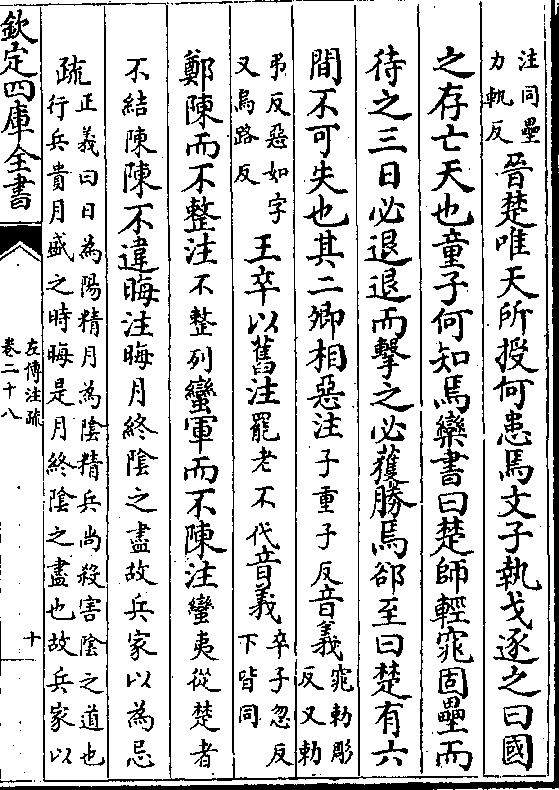 注同壘
力軌反
晉楚唯天所授何患焉文子執戈逐之曰國
之存亡天也童子何知焉欒書曰楚師輕窕固壘而
待之三日必退退而擊之必獲勝焉郤至曰楚有六
間不可失也其二卿相惡注子重子反音義
窕勅彫
反又勅
弔反惡如字
又烏路反
王卒以舊注罷老不代音義
卒子忽反
下皆同
鄭陳而不整注不整列蠻軍而不陳注蠻夷從楚者
不結陳陳不違晦注晦月終陰之盡故兵家以為忌
疏
正義曰日為陽精月為陰精兵尚殺害陰之道也
行兵貴月盛之時晦是月終陰之盡也故兵家以
欽定四庫全書
左傳注疏
卷二十八
十